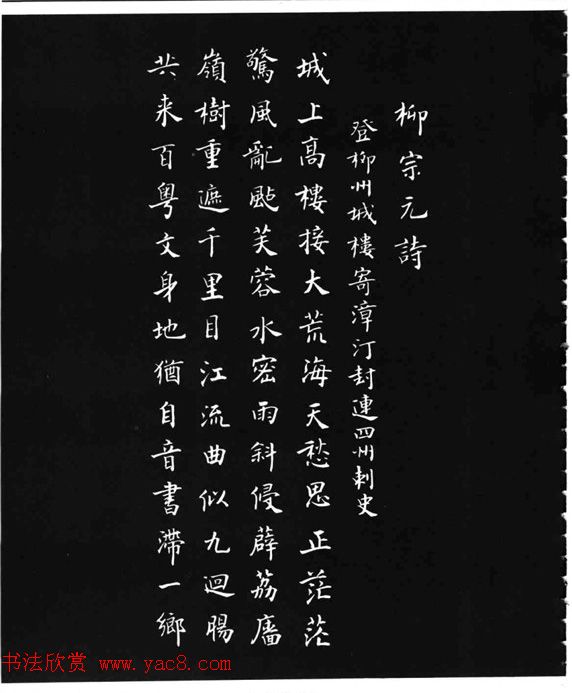 柳宗元詩
登柳州城樓寄漳汀封連四州刺史
城上高樓接大荒海天愁思正茫茫
驚風亂颭芙蓉水密雨斜侵薜荔牆
嶺樹重遮千里目江流曲似九迴腸
共来百粤文身地猶自音書滯一鄉
书法欣赏 www.yac8.com